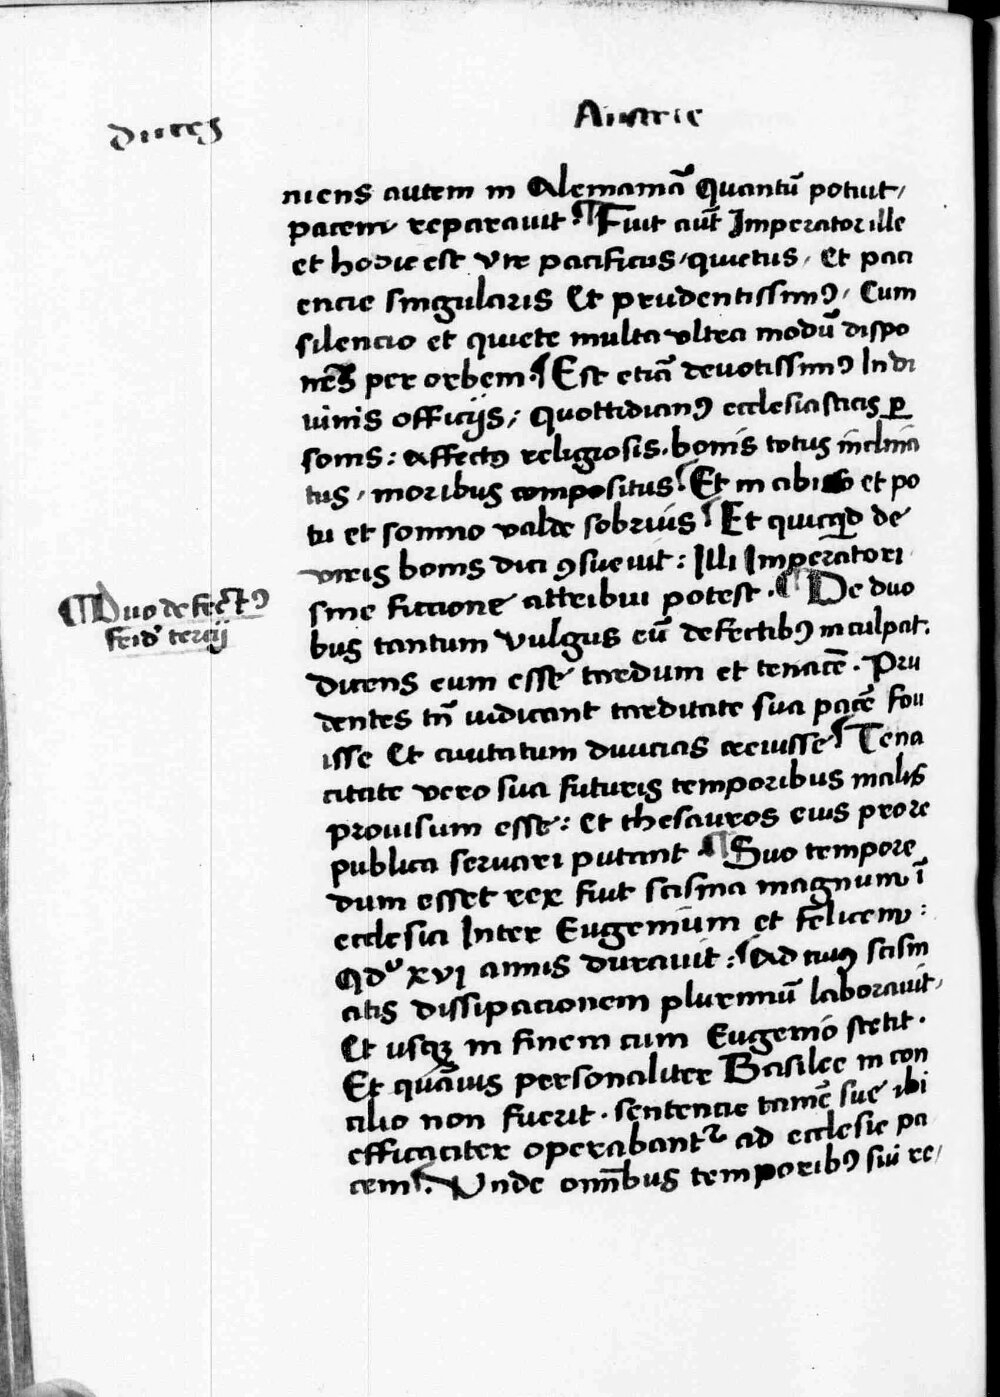 Duces
Austrie
niens autem in Alemaniā Quantū potuit/
pacem reparavit. ¶ Fuit aut̄ Imperator ille
et hodie est vir pacificus/ quietus/ Et paci
encie singularis Et prudentissimꝯ/ Cum
silencio et quiete multa ultra modū dispo
nēs per orbem. ¶ Est etiā devotissimꝯ In di
vinis officijs/ Quottidianꝯ ecclesiasticis ꝑ
sonis: affectꝯ religiosis. bonis totus inclina
tus/ moribus compositus. ¶ Et in cibis et po
tu et somno valde sobrius ¶ Et quicqd de
viris bonis dici ꝯsuevit: Illi Imperatori
sine ficcione attribui potest. ¶ De duo
bus tantum Vulgus eū defectibꝯ inculpat.
¶ Duo defectꝯ
feid' tercij
Dicens eum esse tardum et tenacē. Pru
dentes tn̄ iudicant tarditate sua pacē fou
isse Et civitatum divicias crevisse ¶ Tena
citate vero sua futuris temporibus malis
provisum esse: Et thesauros eius pro re
publica servari putant. ¶ Suo tempore
dum esset rex fiut scisma magnum ī
ecclesia Inter Eugenium et felicem:
Qd' xvi annis duravit: ¶ Ad cuiꝯ scism
atis dissipacionem plurimū laboravit/
Et usqꝫ in finem cum Eugenio stetit.
Et quāvis personaliter Basilee in con
cilio non fuerit. sentencie tamē sue ibi
efficaciter operabantꝛ ad ecclesie pa
cem. Unde omnibus temporibꝯ sui re/